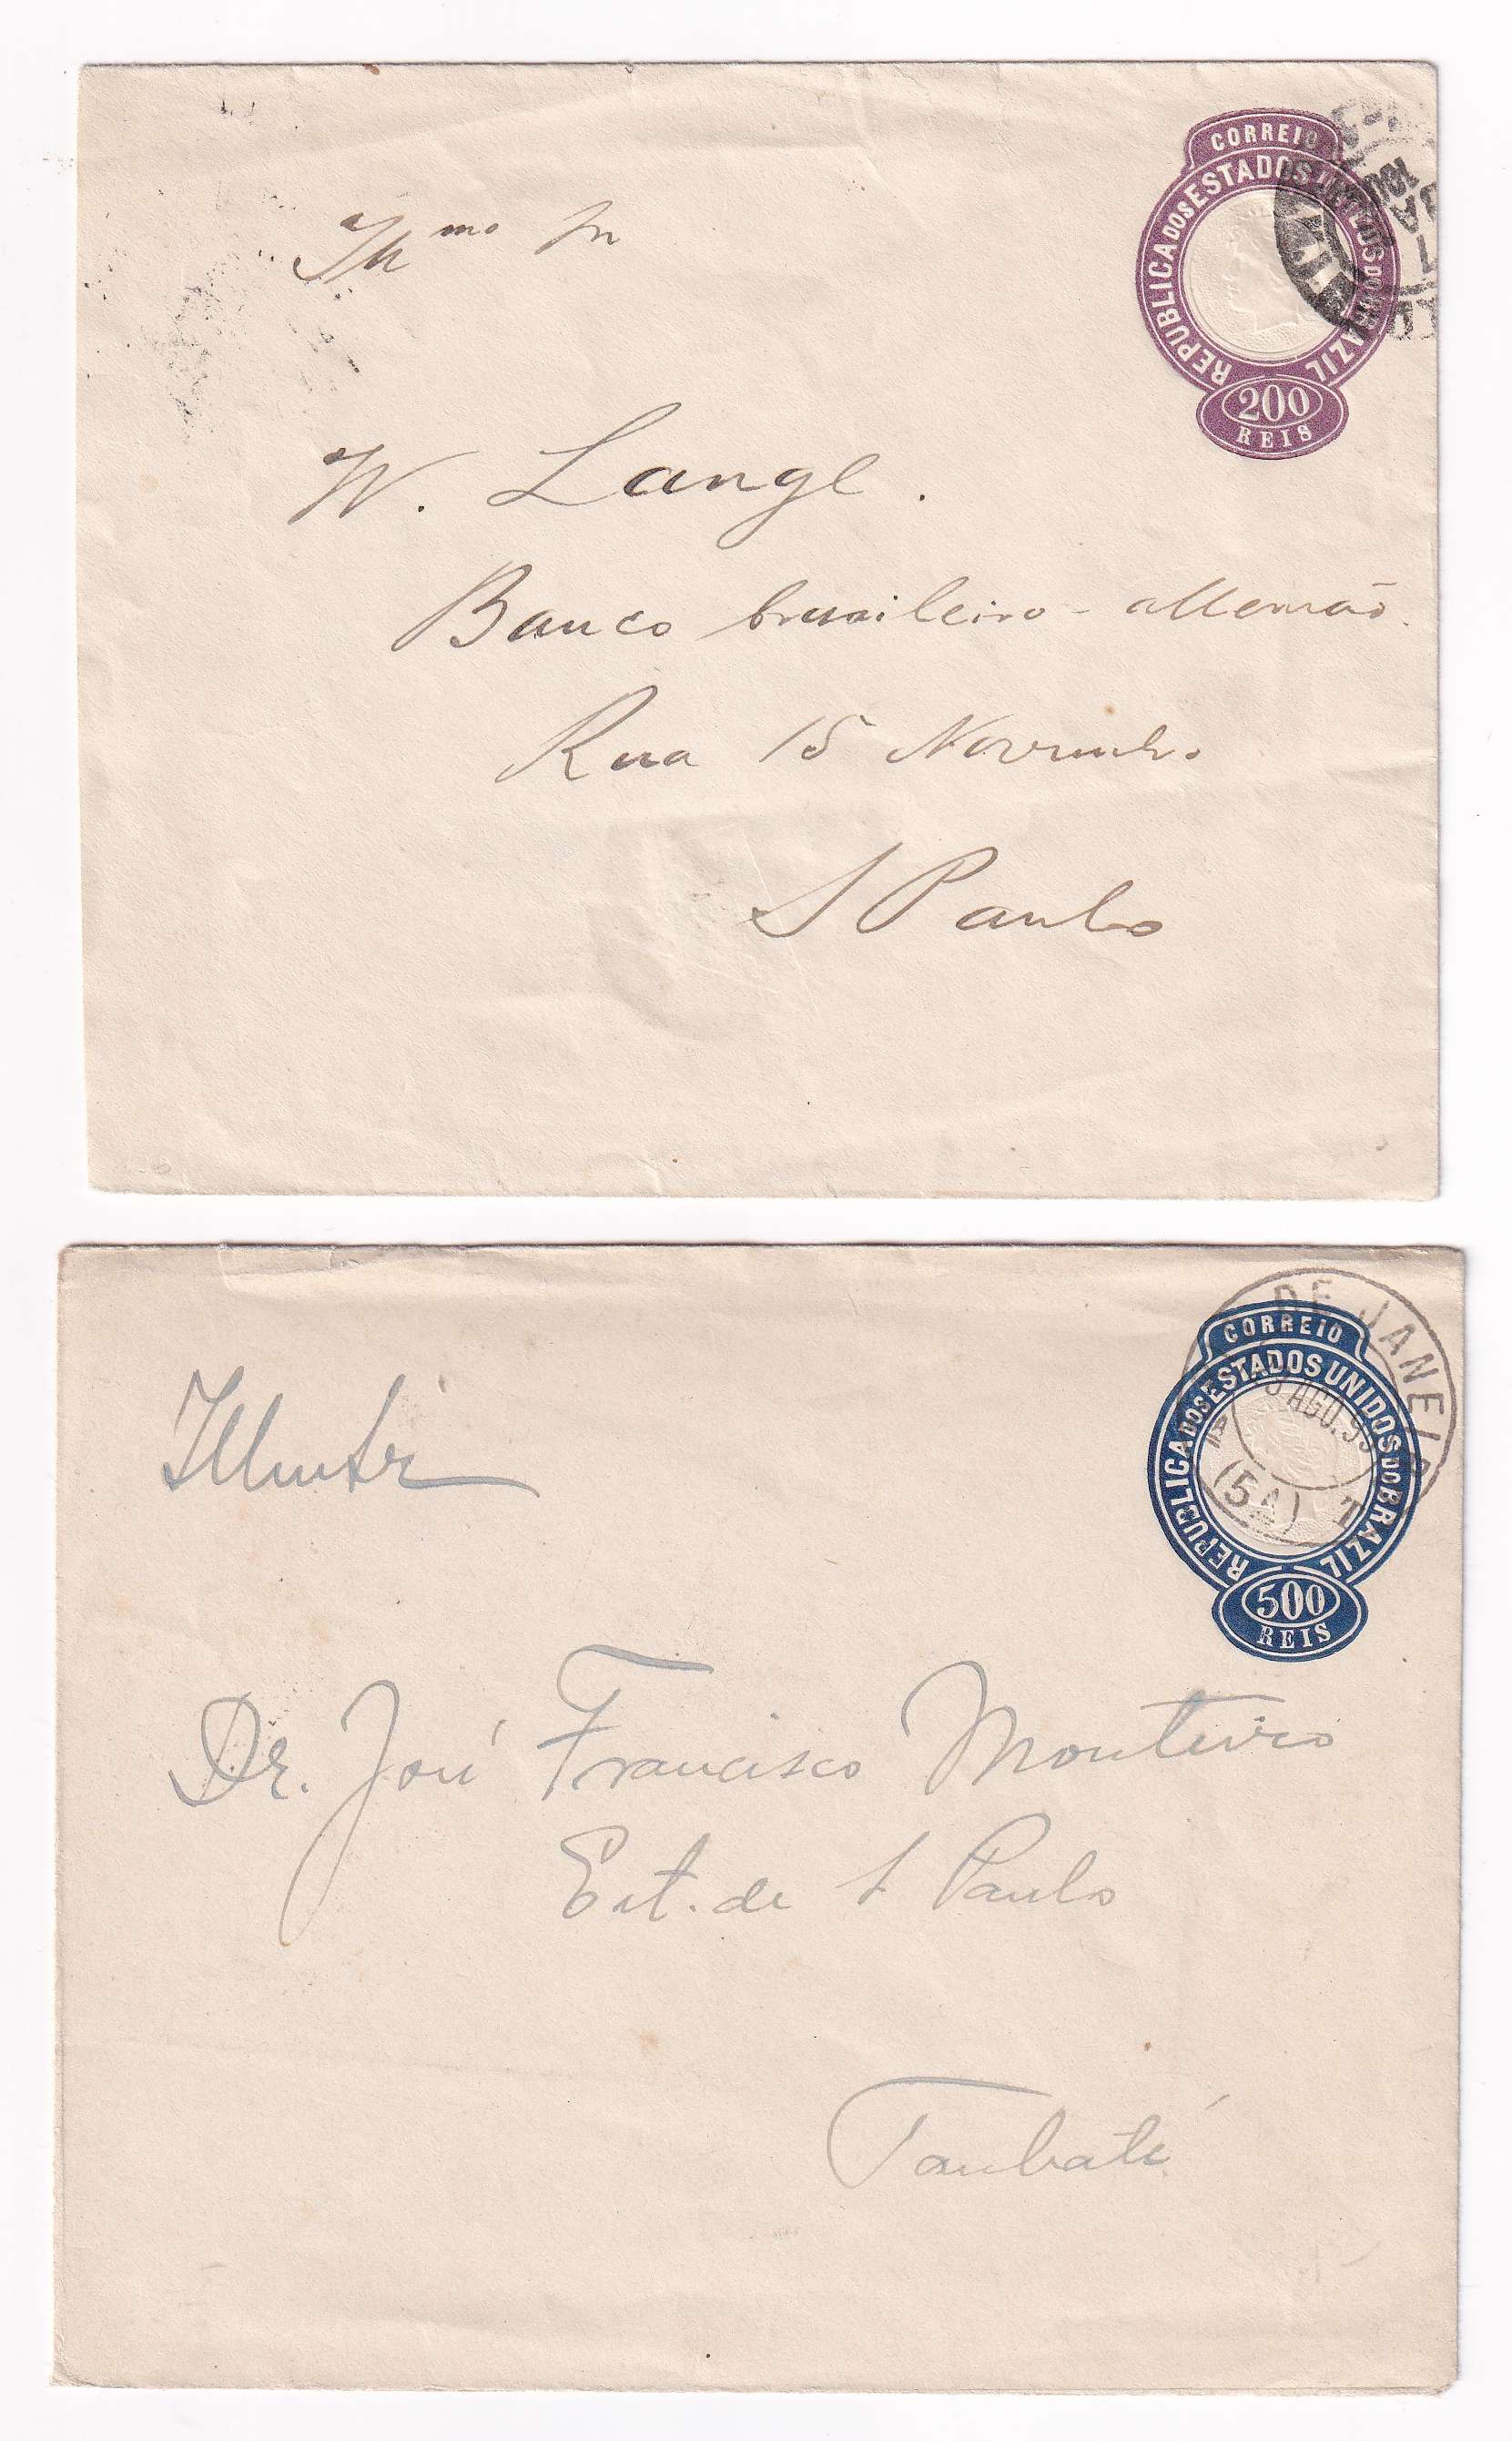 CORREIO
REPUBLICA DOS ESTADOS UNIDOS DO BRAZIL
200
REIS
Illmo Sr
W. Lange.
Banco brasileiro-allemão.
Rua 15 Novembro
S Paulo
DE JANEIRO
AGO. 9
(5A) T
CORREIO
REPUBLICA DOS ESTADOS UNIDOS DO BRAZIL
500
REIS
Illmo Sr
Dr. José Francisco Monteiro
Est. de S Paulo
Taubaté